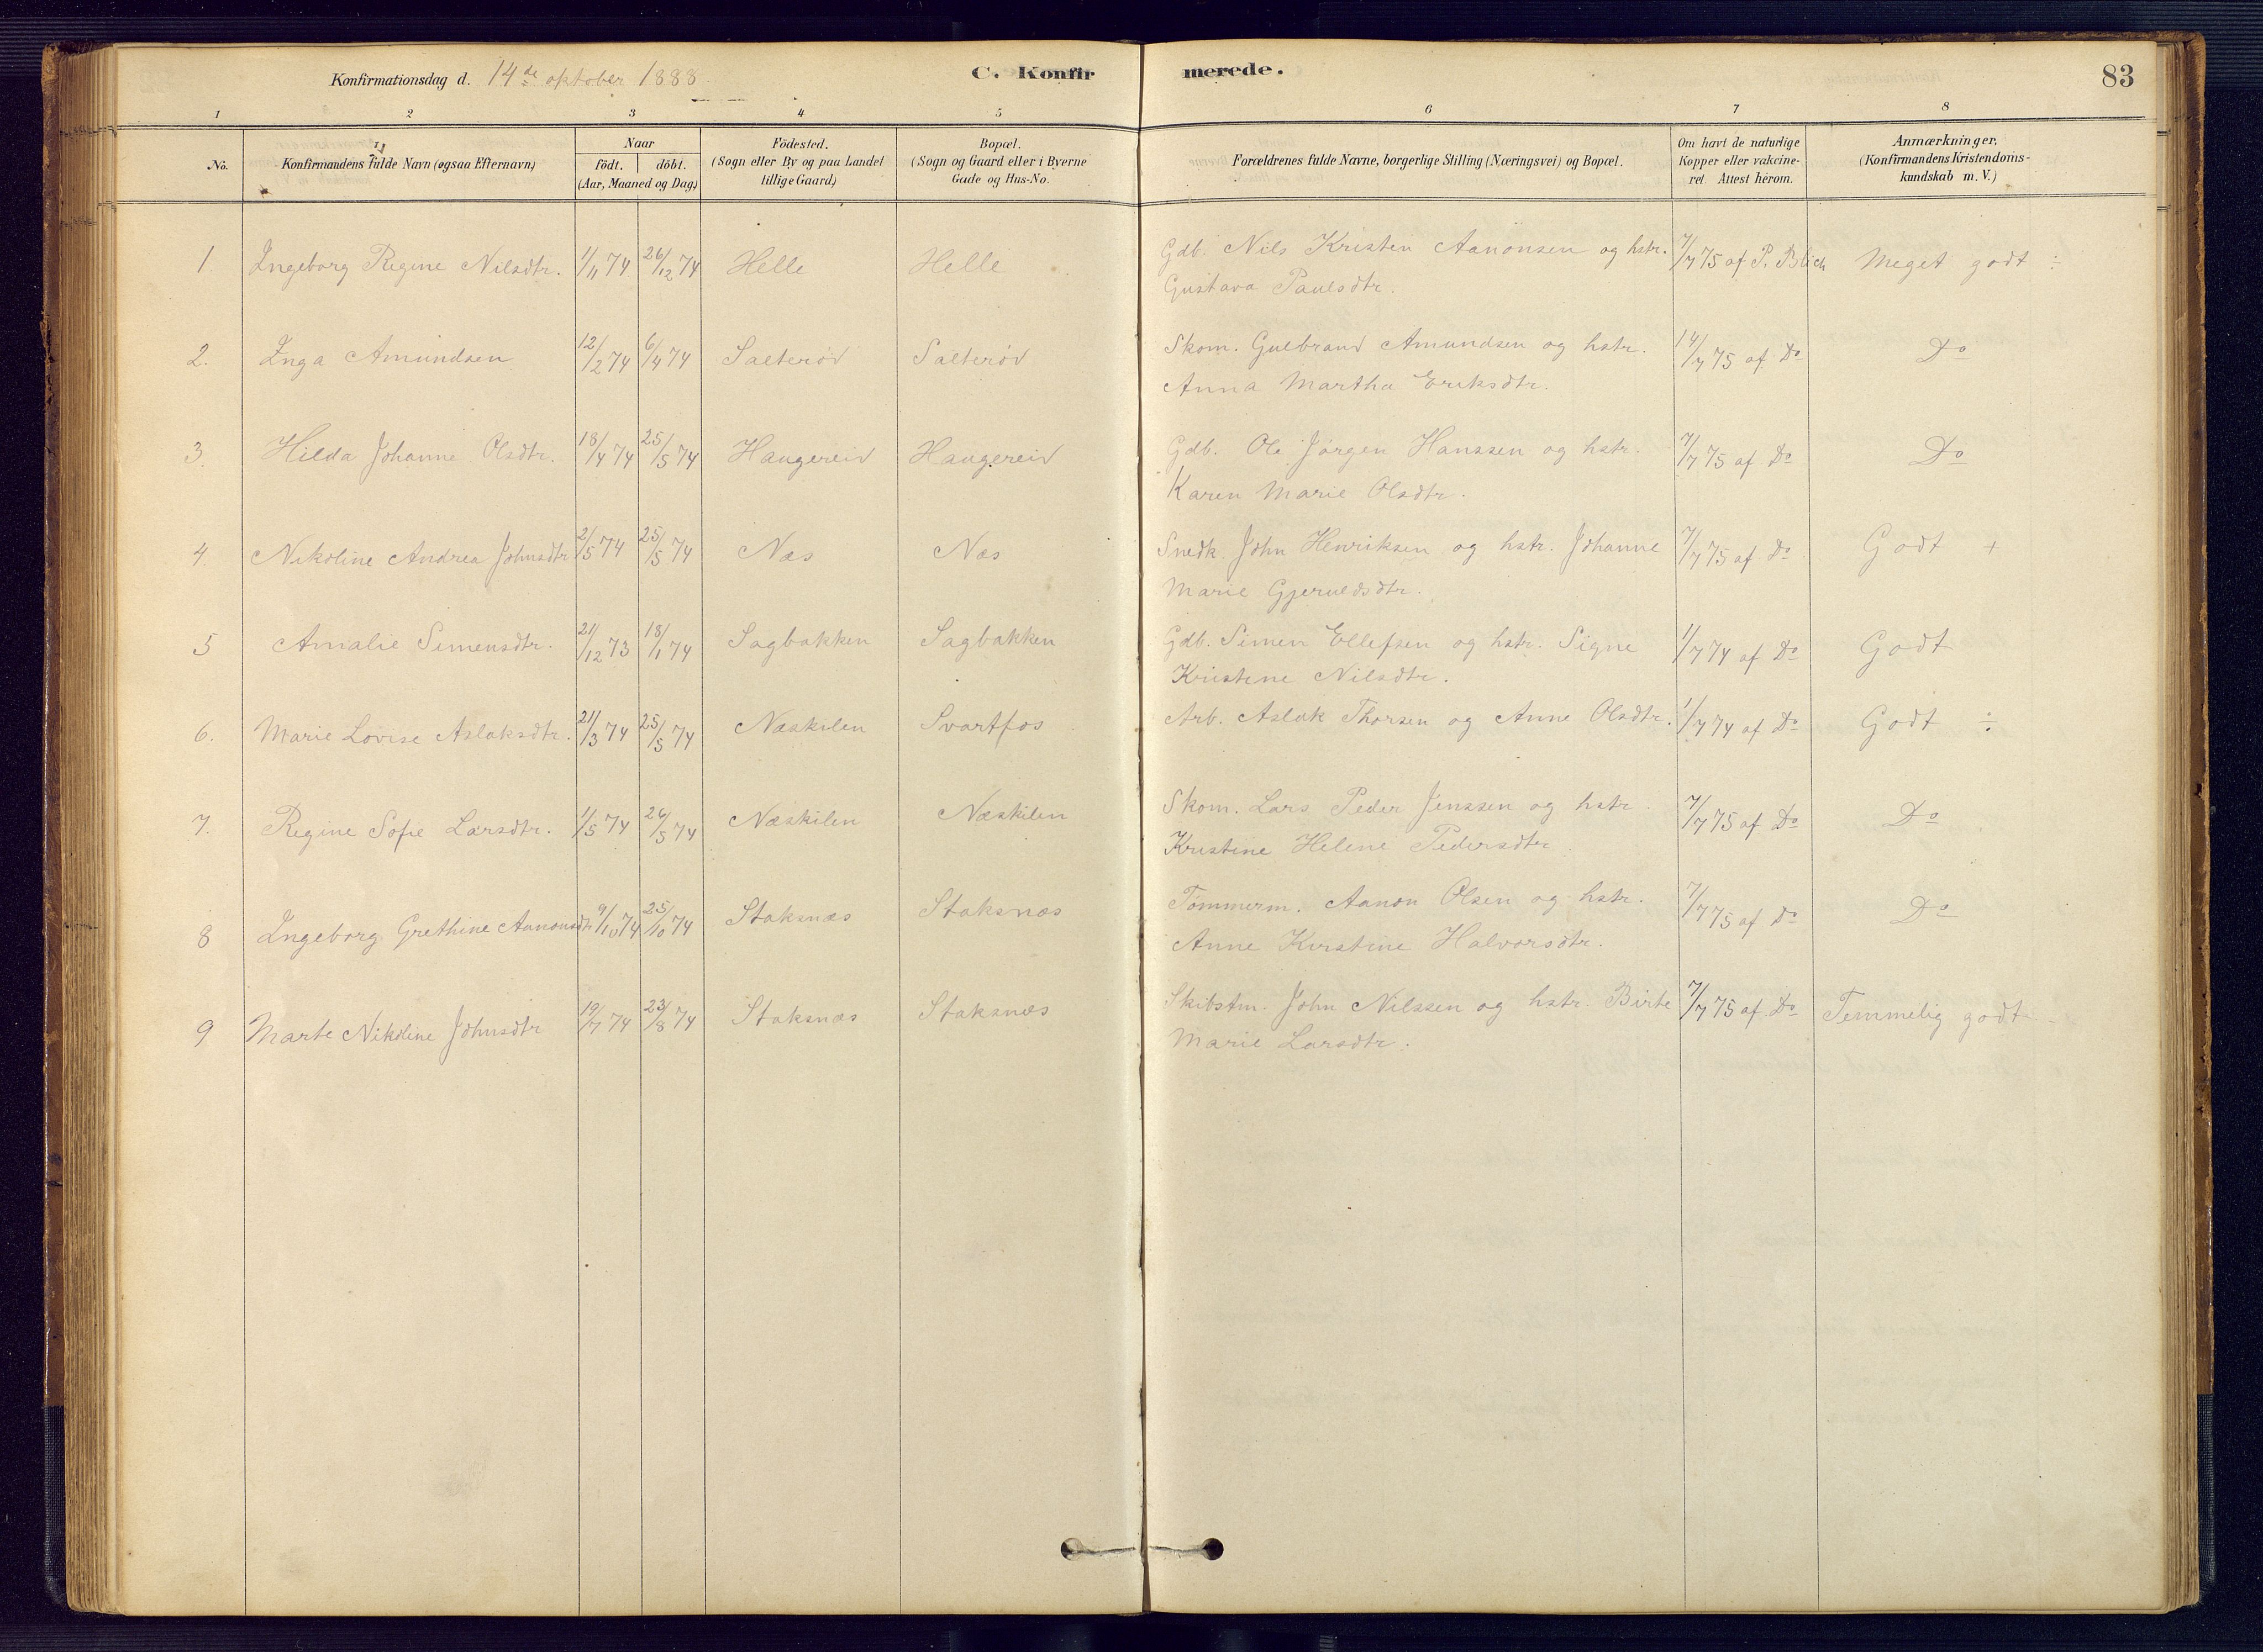 Konfirmationsdag d. 14de oktober 1888
C. Konfirmerede.
83
1 2 3 4 5 6 7 8
No.
Konfirmandens fulde Navn (ogsaa Efternavn)
Naar
födt. döbt.
(Aar, Maaned og Dag)
Födested.
(Sogn eller By og paa Landet
tillige Gaard)
Bopæl.
(Sogn og Gaard eller i Byerne
Gade og Hus-No.
Forældrenes fulde Navne, borgerlige Stilling (Næringsvei) og Bopæl.
Om havt de naturlige
Kopper eller vakcine-
ret. Attest herom.
Anmærkninger.
(Konfirmandens Kristendoms-
kundskab m. V.)
1 Ingeborg Regine Nilsdtr. 1/11 74 26/12 74 Helle Helle Gdb. Nils Kristen Aanonsen og hstr. 7/7 75 af P. Blich Meget godt ÷
Gustava Paulsdtr.
2. Inga Amundsen 12/2 74 6/4 74 Salteröd Salteröd Skom. Gulbrand Amundsen og hstr. 14/7 75 af Do Do
Anna Martha Eriksdtr.
3. Hilda Johanne Olsdtr. 18/4 74 25/5 74 Haugereid Haugereid Gdb. Ole Jörgen Hanssen og hstr. 7/7 75 af Do Do
Karen Marie Olsdtr.
4. Nikoline Andrea Johnsdtr 2/5 74 25/5 74 Næs Næs Snedk. John Henriksen og hstr. Johanne 7/7 75 af Do Godt +
Marie Gjeruldsdtr.
5 Amalie Simensdtr. 21/12 73 18/1 74 Sagbakken Sagbakken Gdb. Simen Ellefsen og hstr. Signe 1/7 74 af Do Godt
Kristine Nilsdtr.
6. Marie Lovise Aslaksdtr. 21/3 74 25/5 74 Næskilen Svartfos Arb. Aslak Thorsen og Anne Olsdtr. 1/7 74 af Do Godt ÷
7. Regine Sofie Larsdtr. 1/5 74 26/5 74 Næskilen Næskilen Skom. Lars Peder Jenssen og hstr. 7/7 75 af Do Do
Kristine Helene Pedersdtr
8 Ingeborg Grethine Aanonsdtr 9/10 74 25/10 74 Staksnæs Staksnæs Tømmerm. Aanon Olsen og hstr. 7/7 75 af Do Do
Anne Kirstine Halvorsdtr.
9 Marte Nikoline Johnsdtr 19/7 74 23/8 74 Staksnæs Staksnæs Skibstm. John Nilssen og hstr. Birte 7/7 75 af Do Temmelig godt
Marie Larsdtr.